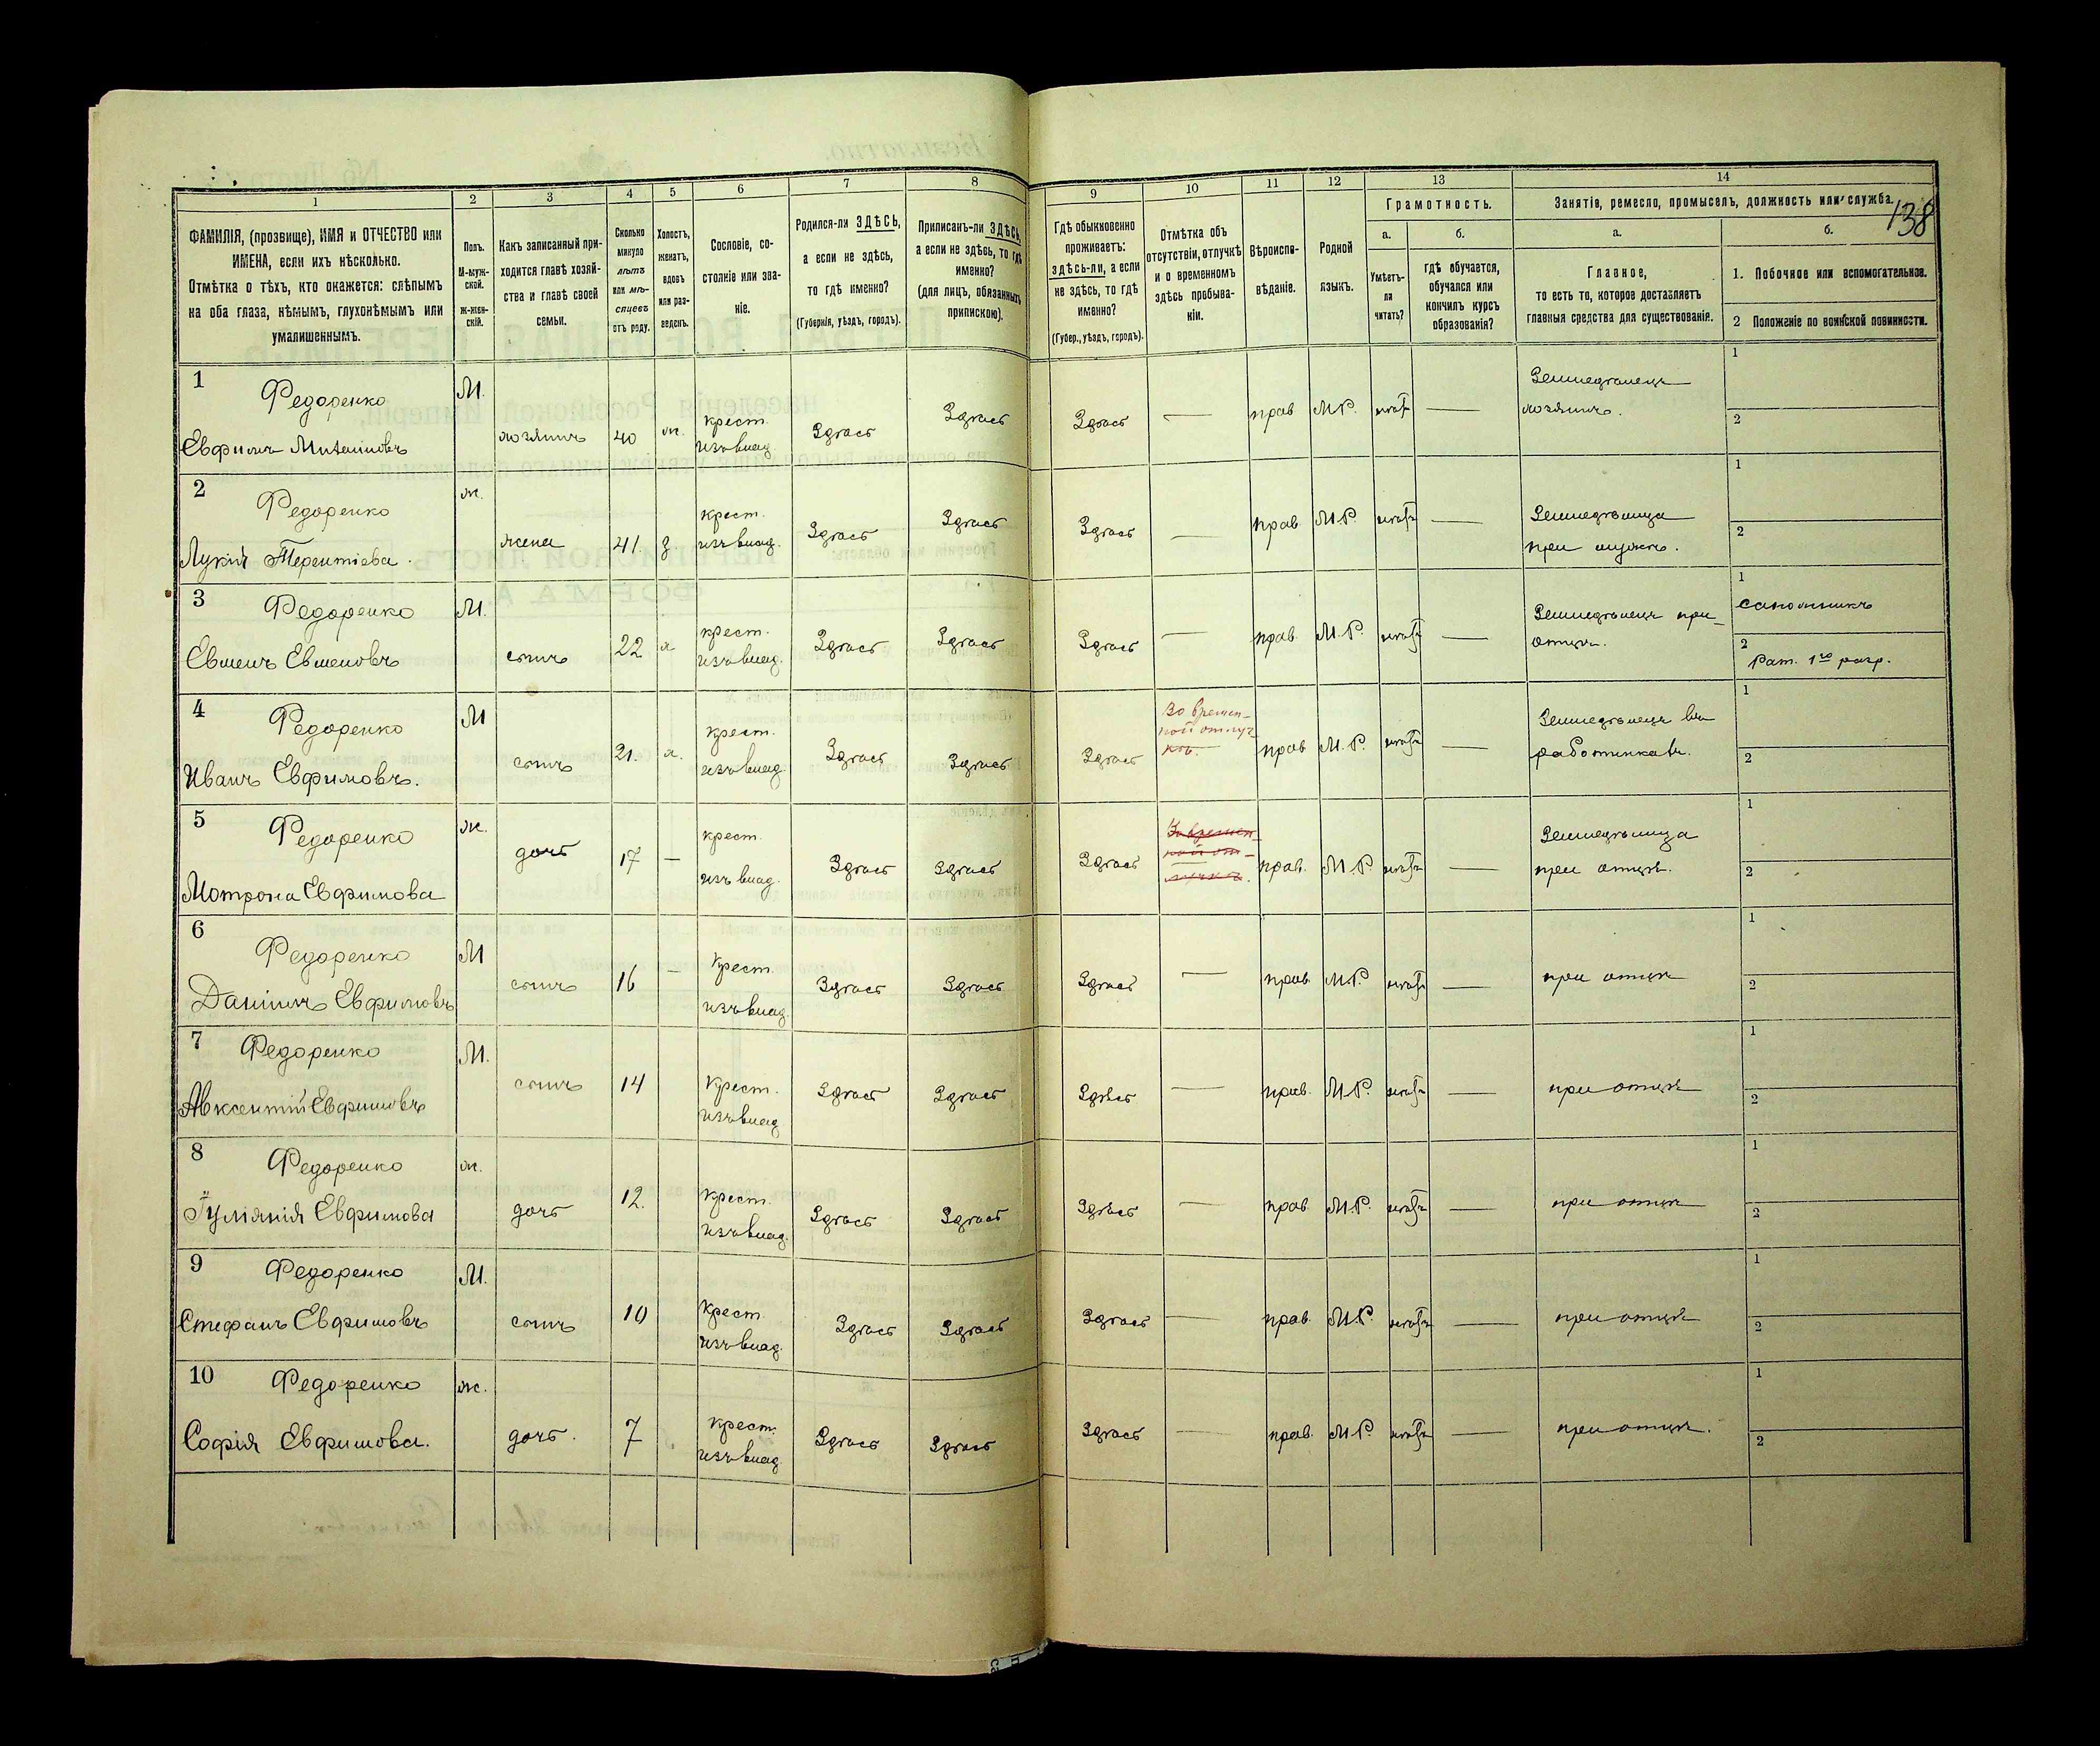 138
1 2 3 4 5 6 7 8 9 10 11 12 13 14
ФАМИЛІЯ, (прозвище), ИМЯ и ОТЧЕСТВО или
ИМЕНА, если ихъ нѣсколько.
Отмѣтка о тѣхъ, кто окажется: слѣпымъ
на оба глаза, нѣмымъ, глухонѣмымъ или
умалишеннымъ.
Полъ.
М-муж-
ской.
Ж-жен-
скій.
Какъ записанный при-
ходится главѣ хозяй-
ства и главѣ своей
семьи.
Сколько
минуло
лѣтъ
или мѣ-
сяцевъ
отъ роду.
Холостъ,
женатъ,
вдовъ
или раз-
веденъ.
Сословіе, со-
стояніе или зва-
ніе.
Родился-ли ЗДѢСЬ,
а если не здѣсь,
то гдѣ именно?
(Губернія, уѣздъ, городъ).
Приписанъ-ли ЗДѢСЬ,
а если не здѣсь, то гдѣ
именно?
(для лицъ, обязанныхъ
припискою).
Гдѣ обыкновенно
проживаетъ:
здѣсь-ли, а если
не здѣсь, то гдѣ
именно?
(Губер., уѣздъ, городъ).
Отмѣтка объ
отсутствіи, отлучкѣ
и о временномъ
здѣсь пребыва-
ніи.
Вѣроиспо-
вѣданіе.
Родной
языкъ.
Грамотность.
а.
Умѣетъ-
ли
читать?
б.
гдѣ обучается,
обучался или
кончилъ курсъ
образованія?
Занятіе, ремесло, промыселъ, должность или служба.
а.
Главное,
то есть то, которое доставляетъ
главныя средства для существованія.
б.
1. Побочное или вспомогательное.
2 Положеніе по воинской повинности.
1 Федоренко М.
Евфимъ хозяинъ 40 ж. крест. Здѣсь Здѣсь Здѣсь — прав М.Р. нѣтъ — Земледѣлецъ 1
изъ влад. хозяинъ. 2
2 Федоренко ж.
Лукія Терентіева. жена 41. з. крест. Здѣсь Здѣсь Здѣсь — прав. М.Р. нѣтъ — Земледѣлица 1
изъ влад. при мужѣ. 2
3 Федоренко М.
сынъ 22 х крест. Здѣсь Здѣсь Здѣсь — прав. М.Р. нѣтъ — Земледѣлецъ при 1 сапожникъ
изъ влад. отцѣ. 2 Рат. 1го разр.
4 Федоренко М
Иванъ Евфимовъ. сынъ 21. х. крест. Здѣсь Здѣсь Здѣсь Во времен- прав М.Р. нѣтъ — Земледѣлецъ въ 1
изъ влад. ной отлуч- работникахъ. 2
кѣ.
5 Федоренко ж.
Мотрона Евфимова дочь 17 — крест. Здѣсь Здѣсь Здѣсь Во времен- прав. М.Р нѣтъ — Земледѣлица 1
изъ влад. ной от- при отцѣ. 2
лучкѣ.
6 Федоренко М
Даніилъ Евфимовъ сынъ 16 — Крест. Здѣсь Здѣсь Здѣсь — прав. М.Р. нѣтъ — при отцѣ 1
изъ влад. 2
7 Федоренко М.
Авксентій Евфимовъ сынъ 14 Крест. Здѣсь Здѣсь Здѣсь — прав. М.Р. нѣтъ — при отцѣ 1
изъ влад. 2
8 Федоренко ж.
Евфимова дочь 12. Крест. Здѣсь Здѣсь Здѣсь — прав М.Р. нѣтъ — при отцѣ 1
изъ влад. 2
9 Федоренко М.
Стефанъ Евфимовъ сынъ 10 Крест. Здѣсь Здѣсь Здѣсь — прав. М.Р. нѣтъ — при отцѣ 1
изъ влад. 2
10 Федоренко ж.
Софія Евфимова. дочь. 7 Крест. Здѣсь Здѣсь Здѣсь — прав. М.Р. нѣтъ — при отцѣ. 1
изъ влад. 2